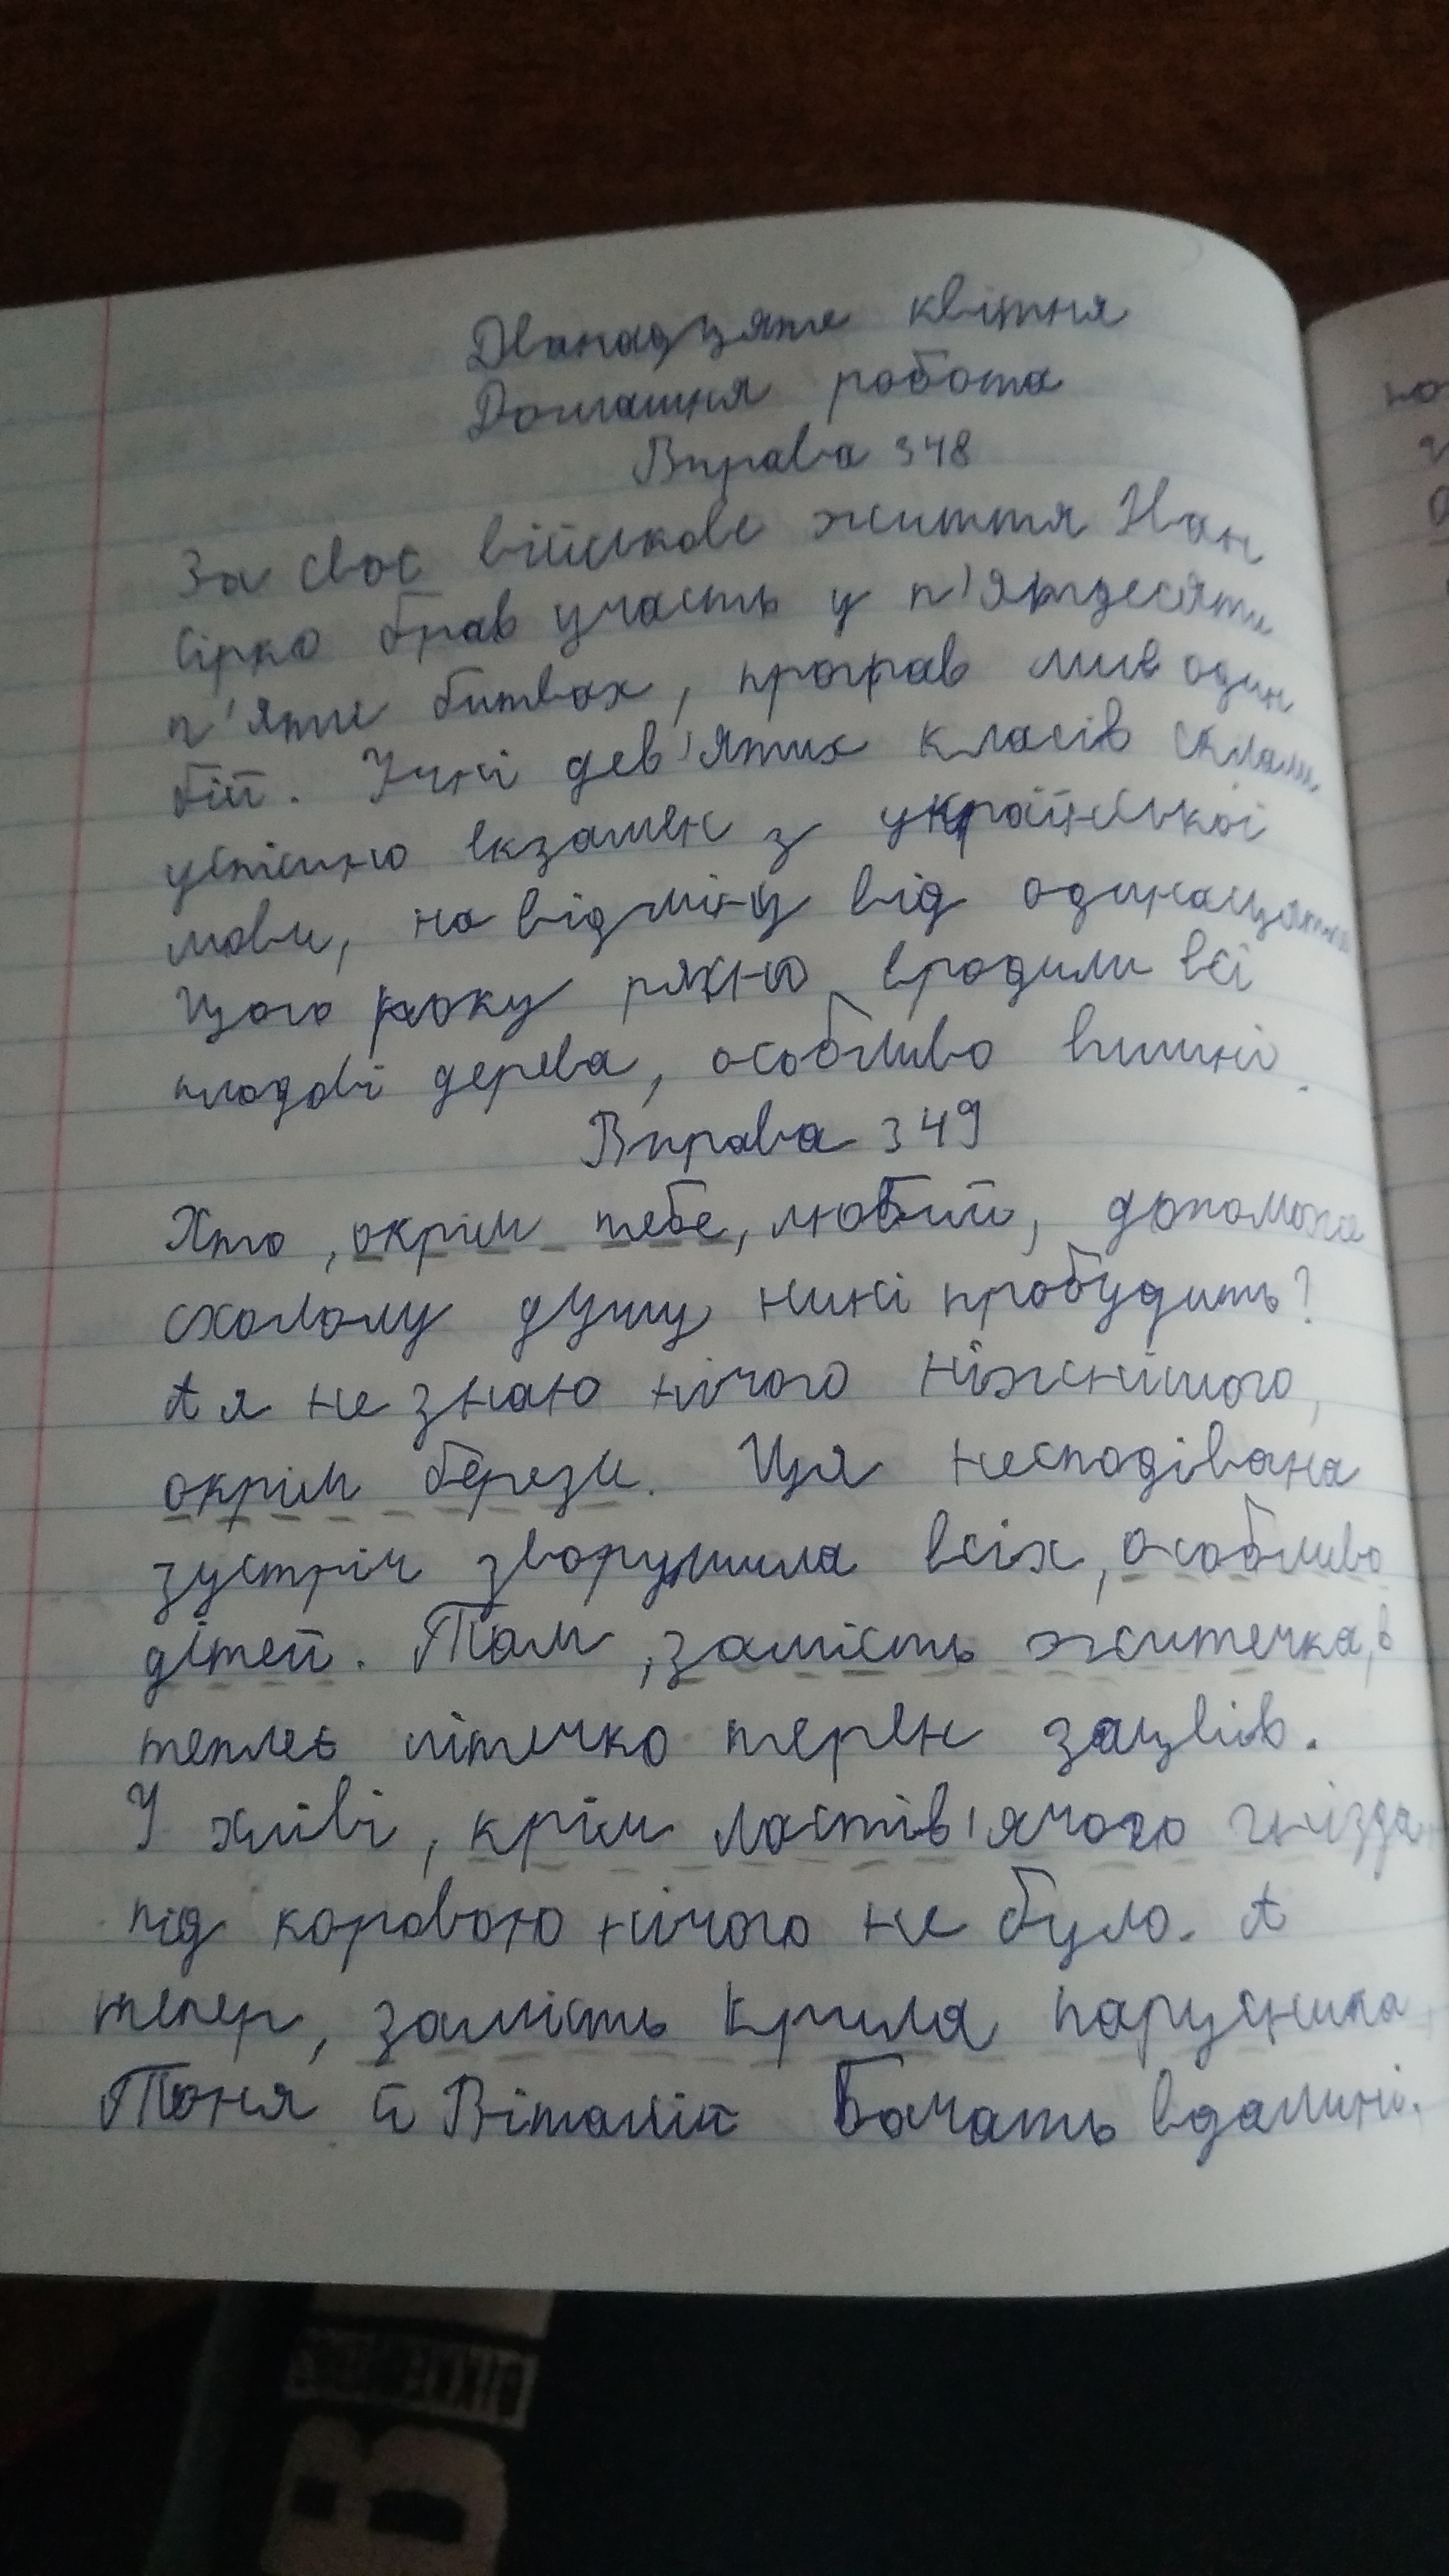 Дванадцяте квітня
Домашня робота
Вправа 348
За своє військове життя Іван
Сірко брав участь у п'ятдесяти
п'яти битвах, програв лив один
бій. Учні дев'ятих класів склали
успішно екзамен з української
мови, на відміну від одинадцятих
Цього року рясно вродили всі
плодові дерева, особливо вишні.
Вправа 349
Хто, окрім тебе, любий, допоможе
схололу душу нині пробудить?
А я не знаю нічого ніжнішого,
окрім берези. Ця несподівана
зустріч зворушила всіх, особливо
дітей. Там, замість житечка, в
теплеє літечко терен зацвів.
У хліві, крім ластів'ячого гнізда
під коровою нічого не було. А
тепер, замість крила парусника
Тоня й Віталій бачать вдалині.